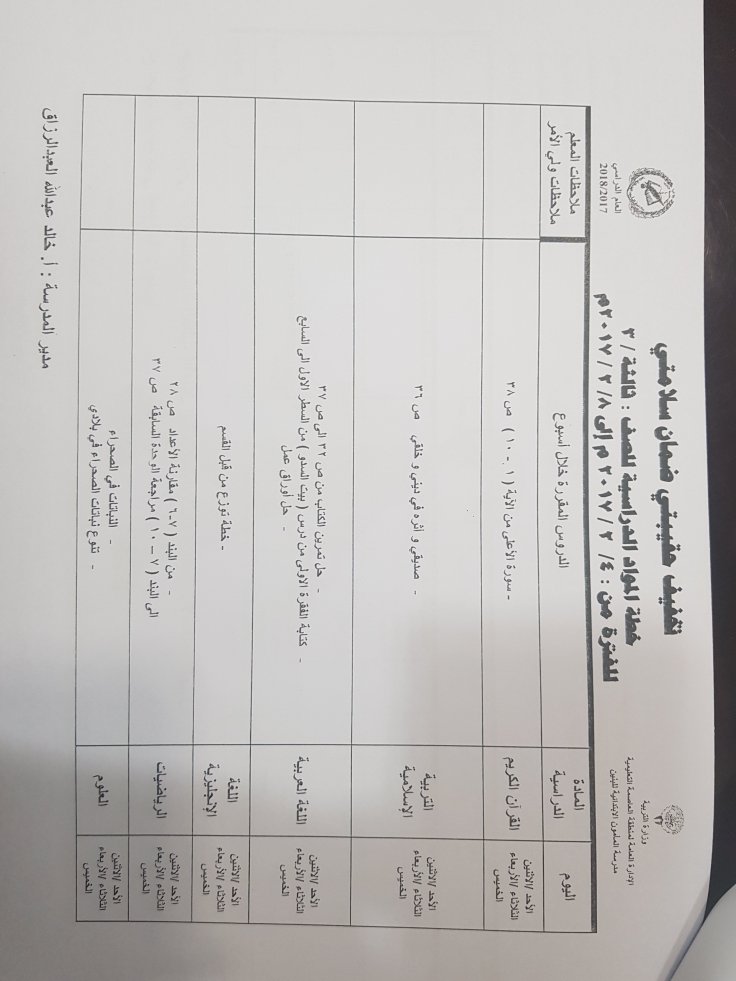 وزارة التربية
الإدارة العامة لمنطقة العاصمة التعليمية
مدرسة المأمون الابتدائية للبنين
تخفيف حقيبتي ضمان سلامتي
خطة المواد الدراسية للصف : ثالثة / ٣
للفترة من : ٤ / ٢ / ٢٠١٧ م إلى ٨ / ٢ / ٢٠١٧ م
العام الدراسي
2018/2017
اليوم
المادة الدراسية
الدروس المقررة خلال أسبوع
ملاحظات المعلم
ملاحظات ولي الأمر
الأحد /الاثنين
الثلاثاء /الأربعاء
الخميس
القرآن الكريم
- سورة الأعلى من الآية ( ١ - ١٠ ) ص ٢٨
الأحد /الاثنين
الثلاثاء /الأربعاء
الخميس
التربية الإسلامية
- صديقي و أثره في ديني و خلقي ص ٣٦
الأحد /الاثنين
الثلاثاء /الأربعاء
الخميس
اللغة العربية
- حل تمرين الكتاب من ص ٣٢ الى ص ٣٧
- كتابة الفقرة الاولى من درس ( بيت السدو ) من السطر الاول الى السابع
- حل أوراق عمل
الأحد /الاثنين
الثلاثاء /الأربعاء
الخميس
اللغة الإنجليزية
- خطة توزع من قبل القسم
الأحد /الاثنين
الثلاثاء /الأربعاء
الخميس
الرياضيات
- من البند ( ٧-٦ ) مقارنة الأعداد ص ٢٨
الى البند ( ٧ – ١٠ ) مراجعة الوحدة السابقة ص ٣٧
الأحد /الاثنين
الثلاثاء /الأربعاء
الخميس
العلوم
- النباتات في الصحراء
- تنوع نباتات الصحراء في بلادي
مدير المدرسة : أ. خالد عبدالله العبدالرزاق